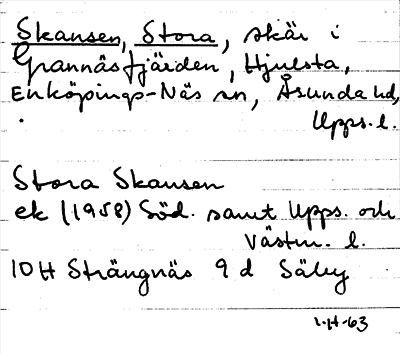 Skansen, Stora, skär i
Grannäsfjärden, Hjulsta,
Enköpings-Näs sn, Åsunda hd,
Upps. l.
Stora Skansen
ek (1958) Söd. samt Upps. och
Västm. l.
10H Strängnäs 9 d Säby
-63